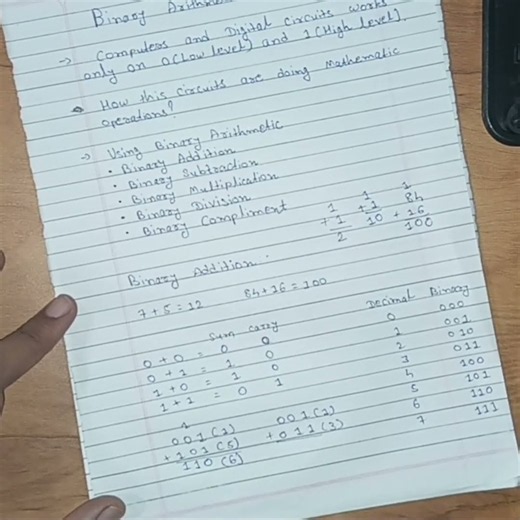 Binary Arithme
→ Computers and Digital circuits works
only on 0(Low level) and 1(High level).
How this circuits are doing Mathematic
operations?
→ Using Binary Arithmetic
• Binary Addition
• Binary Subtraction
• Binary Multiplication
• Binary Division
• Binary Compliment
1 1 1
+1 +1 84
2 10 +16
100
Binary Addition:
7+5=12 84+16=100
Sum Carry
0+0 = 0 0
0+1 = 1 0
1+0 = 1 0
1+1 = 0 1
Decimal Binary
0 000
1 001
2 010
3 011
4 100
5 101
6 110
7 111
1
001(1) 001(1)
+101(5) +011(3)
110(6)